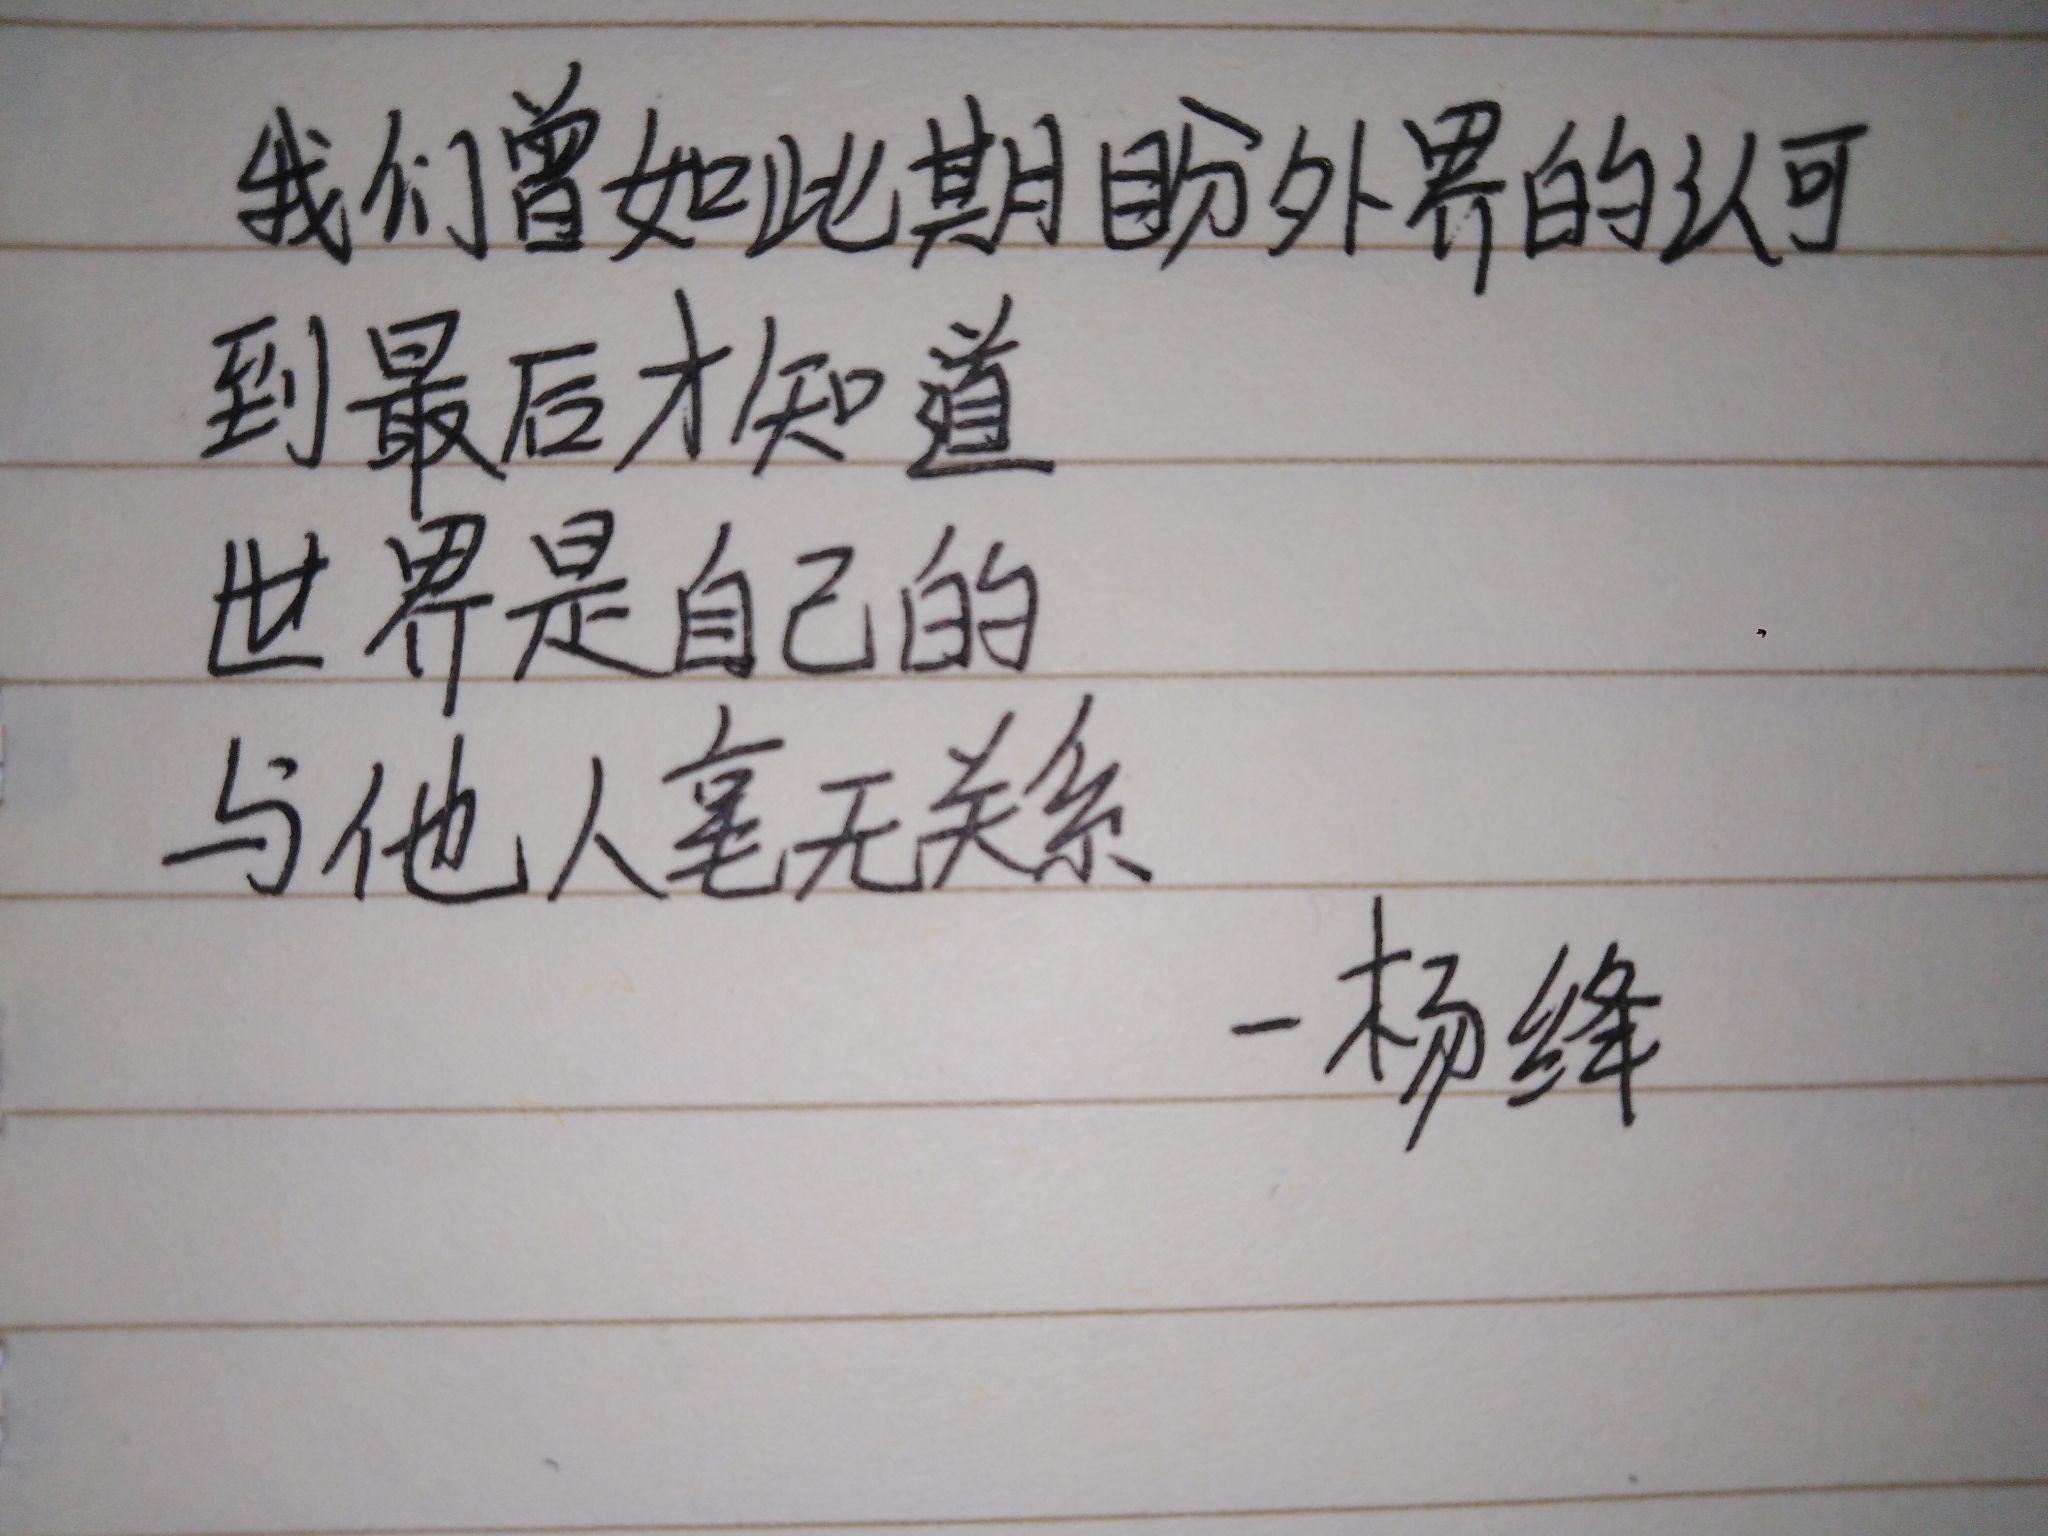 我们曾如此期盼外界的认可
到最后才知道
世界是自己的
与他人毫无关系
-杨绛